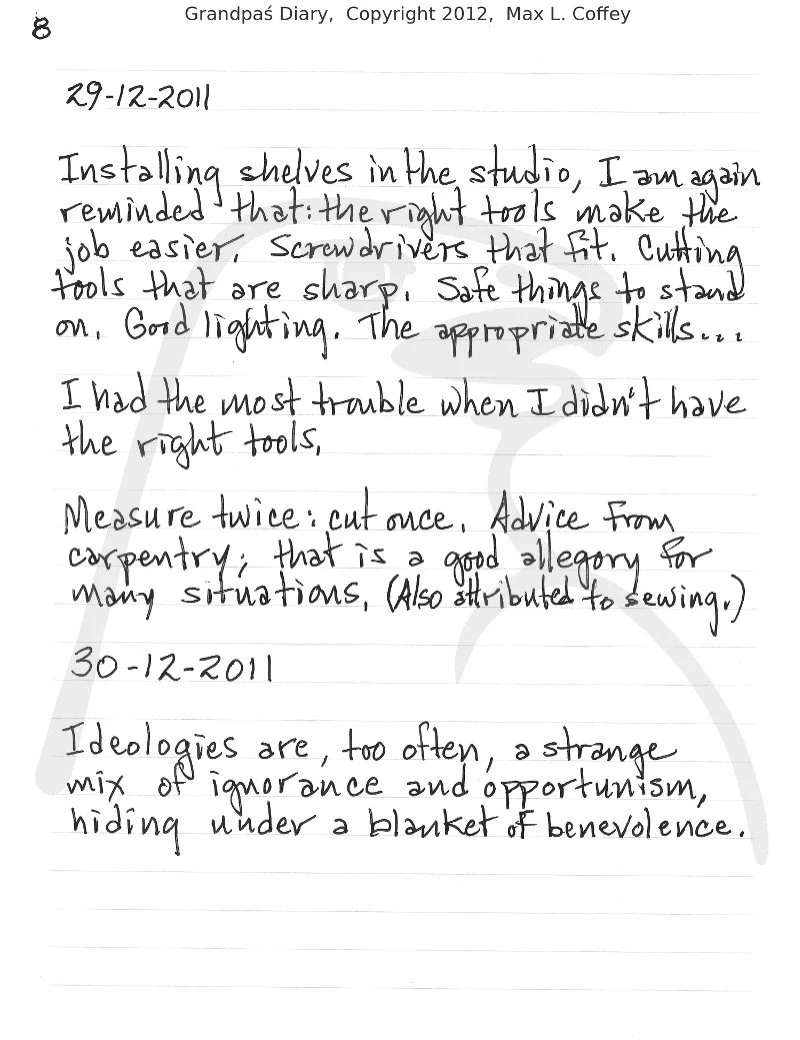 Grandpaś Diary, Copyright 2012, Max L. Coffey
8
29-12-2011
Installing shelves in the studio, I am again
reminded that: the right tools make the
job easier. Screwdrivers that fit. Cutting
tools that are sharp. Safe things to stand
on. Good lighting. The appropriate skills...
I had the most trouble when I didn't have
the right tools.
Measure twice: cut once. Advice from
carpentry; that is a good allegory for
many situations. (Also attributed to sewing.)
30-12-2011
Ideologies are, too often, a strange
mix of ignorance and opportunism,
hiding under a blanket of benevolence.